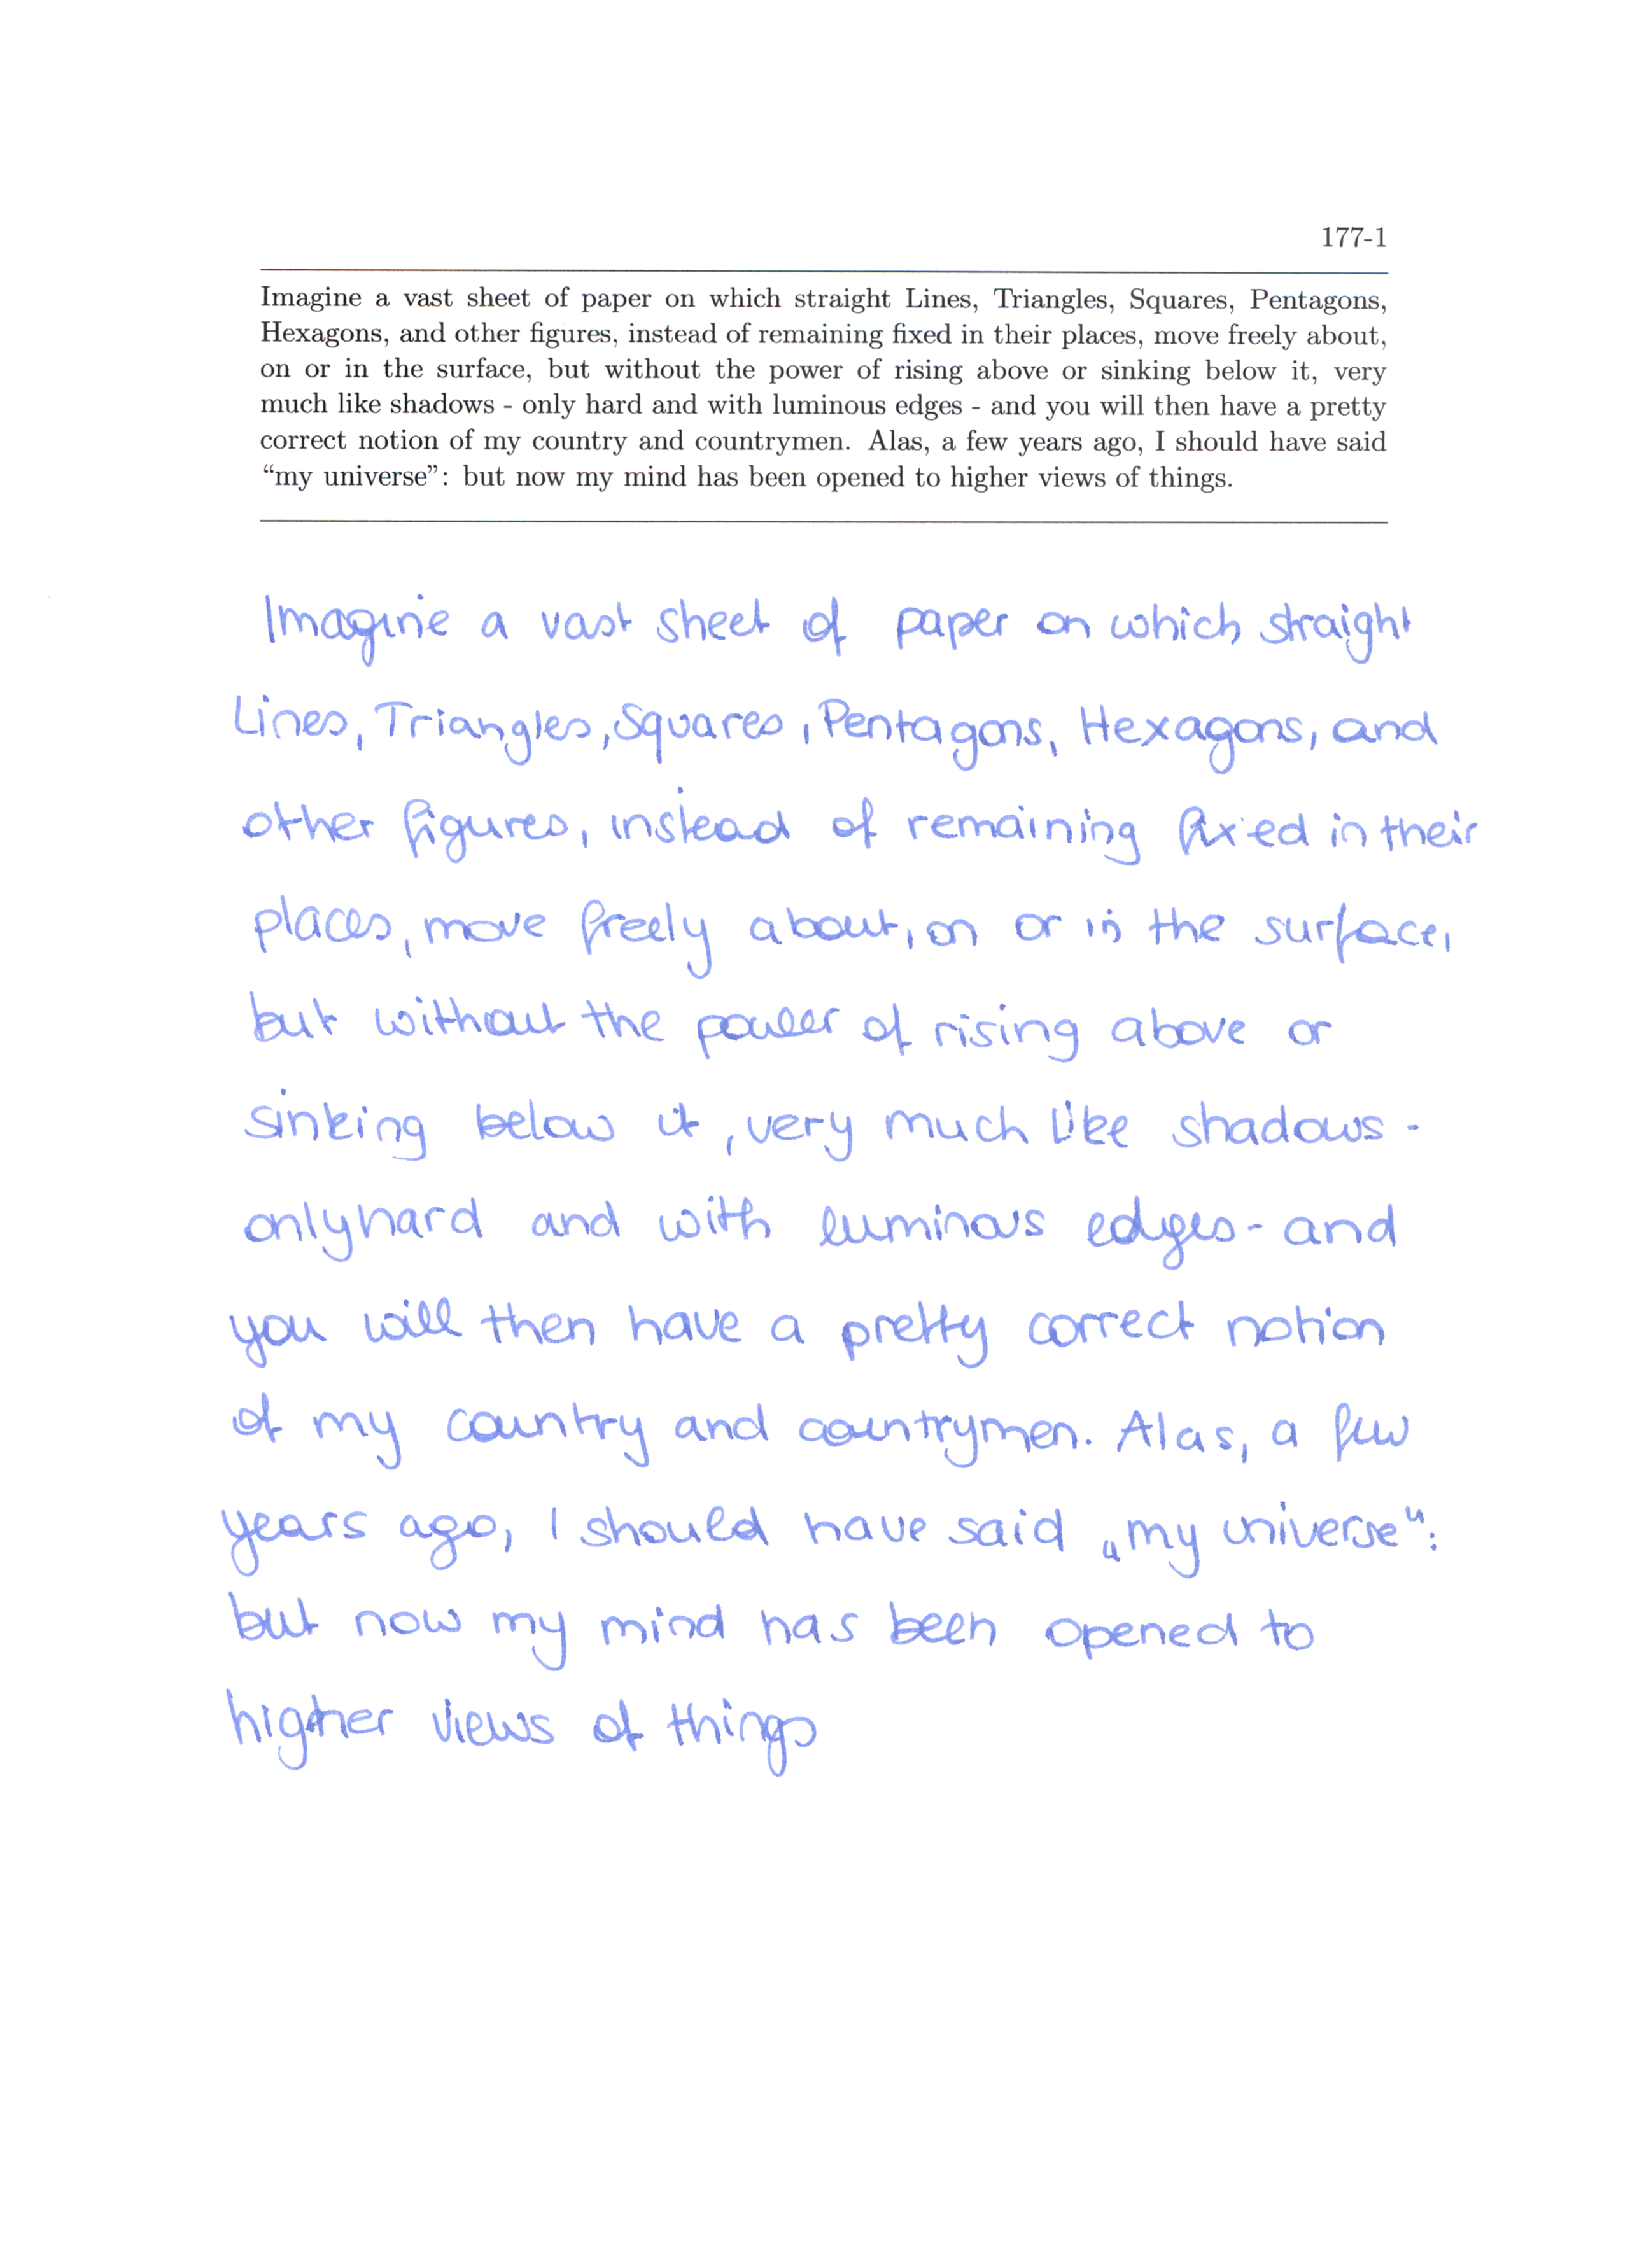 177-1
Imagine a vast sheet of paper on which straight Lines, Triangles, Squares, Pentagons,
Hexagons, and other figures, instead of remaining fixed in their places, move freely about,
on or in the surface, but without the power of rising above or sinking below it, very
much like shadows - only hard and with luminous edges - and you will then have a pretty
correct notion of my country and countrymen. Alas, a few years ago, I should have said
“my universe”: but now my mind has been opened to higher views of things.
Imagine a vast sheet of paper on which straight
Lines, Triangles, Squares, Pentagons, Hexagons, and
other figures, instead of remaining fixed in their
places, move freely about, on or in the surface,
but without the power of rising above or
sinking below it, very much like shadows -
only hard and with luminous edges - and
you will then have a pretty correct notion
of my country and countrymen. Alas, a few
years ago, I should have said „my universe“:
but now my mind has been opened to
higher views of things